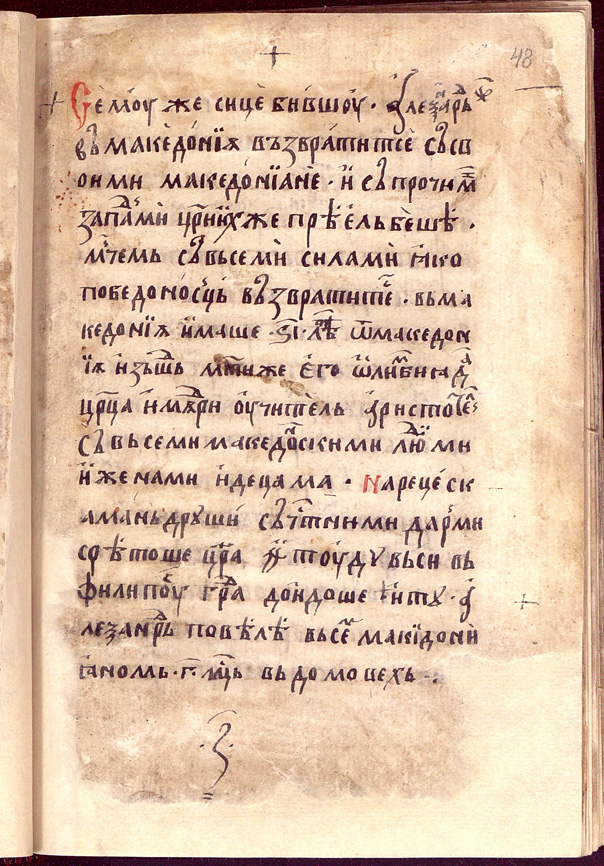 48
Семоу же сице бившоу · Алеѯарь
въ македонїꙗ възвратитсе съ св
оими македонїане · и съ прочими
запами црии ихже прѣѥль бѣшѣ ·
мчемь съ вьсеми силами ꙗко
победоносць възвратитсе · вьма
кедонїꙗ имаше · ві · лѣ ѿ македон
їꙗ изьшь мтиже его ѡлимбиада
црца и мдри оучитель аристотель
съ вьсеми македонскими людми
и женами и децама · На реце ск
аманьдруши съ чтними дарми
срѣтоше цра и ѿтоуду вьси вь
филипоу гра доидоше и ту · а
леѯандрь повѣлѣ вьсе макидони
ꙗномь · г · мць вь домовехь ·
· з ·